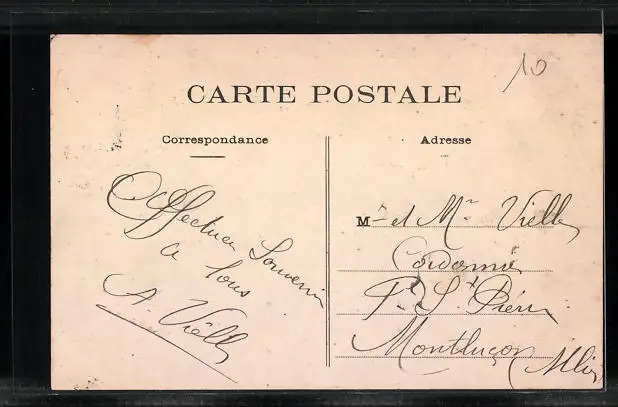 10
CARTE POSTALE
Correspondance
Adresse
Affectueux Souvenir
a tous
A. Vielle
M et Mr Vielle
Cordonnier
Pl St Pierre
Montluçon (Allier